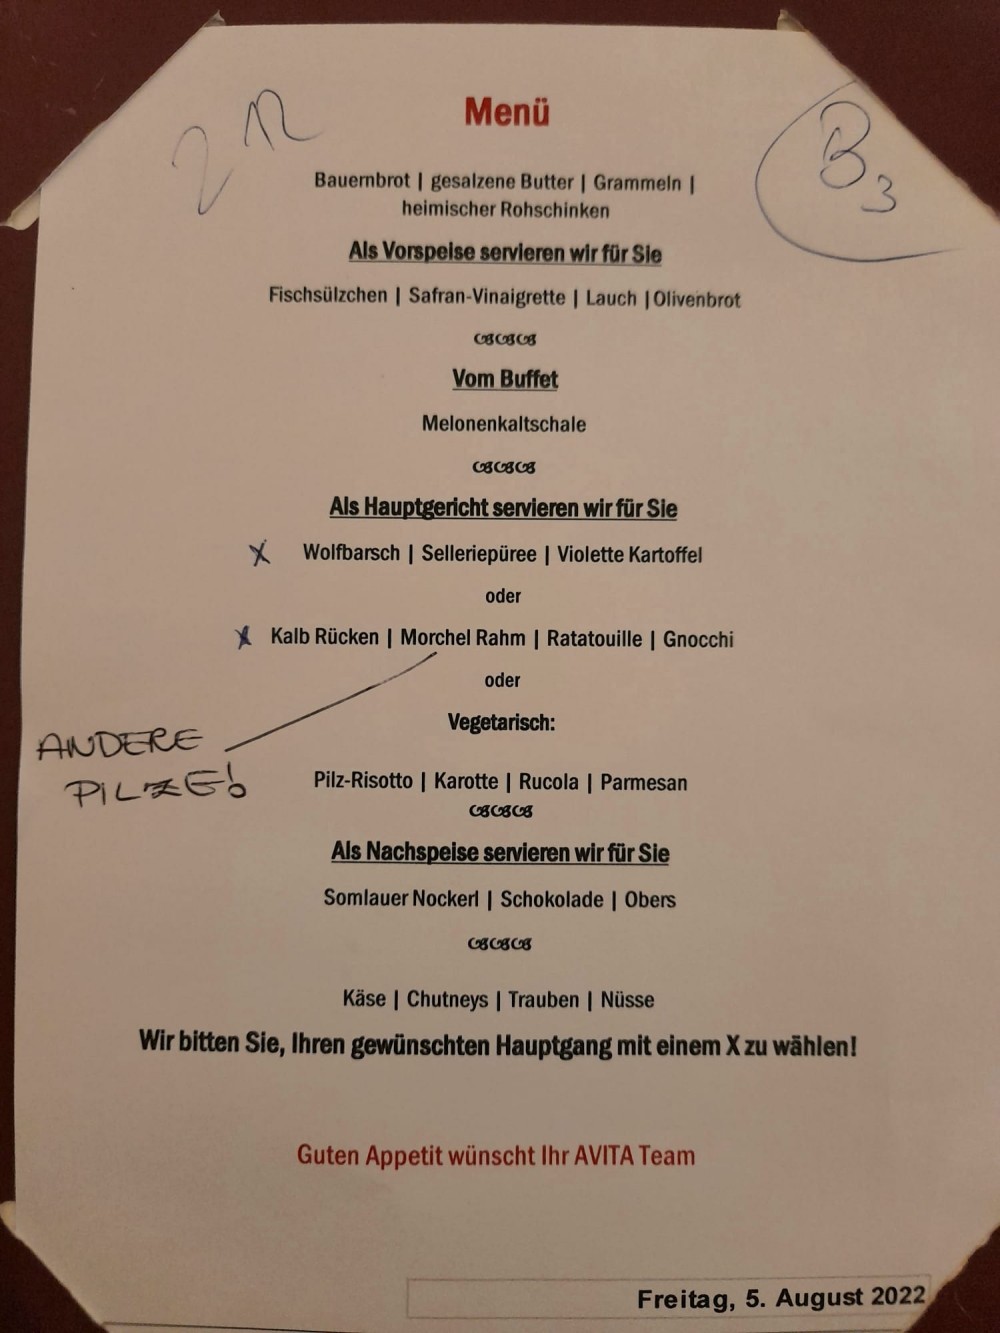 Menü
B3
Bauernbrot | gesalzene Butter | Grammeln |
heimischer Rohschinken
Als Vorspeise servieren wir für Sie
Fischsülzchen | Safran-Vinaigrette | Lauch |Olivenbrot
Vom Buffet
Melonenkaltschale
Als Hauptgericht servieren wir für Sie
X Wolfbarsch | Selleriepüree | Violette Kartoffel
oder
X Kalb Rücken | Morchel Rahm | Ratatouille | Gnocchi
oder
Vegetarisch:
ANDERE
PILZE!
Pilz-Risotto | Karotte | Rucola | Parmesan
Als Nachspeise servieren wir für Sie
Somlauer Nockerl | Schokolade | Obers
Käse | Chutneys | Trauben | Nüsse
Wir bitten Sie, Ihren gewünschten Hauptgang mit einem X zu wählen!
Guten Appetit wünscht Ihr AVITA Team
Freitag, 5. August 2022